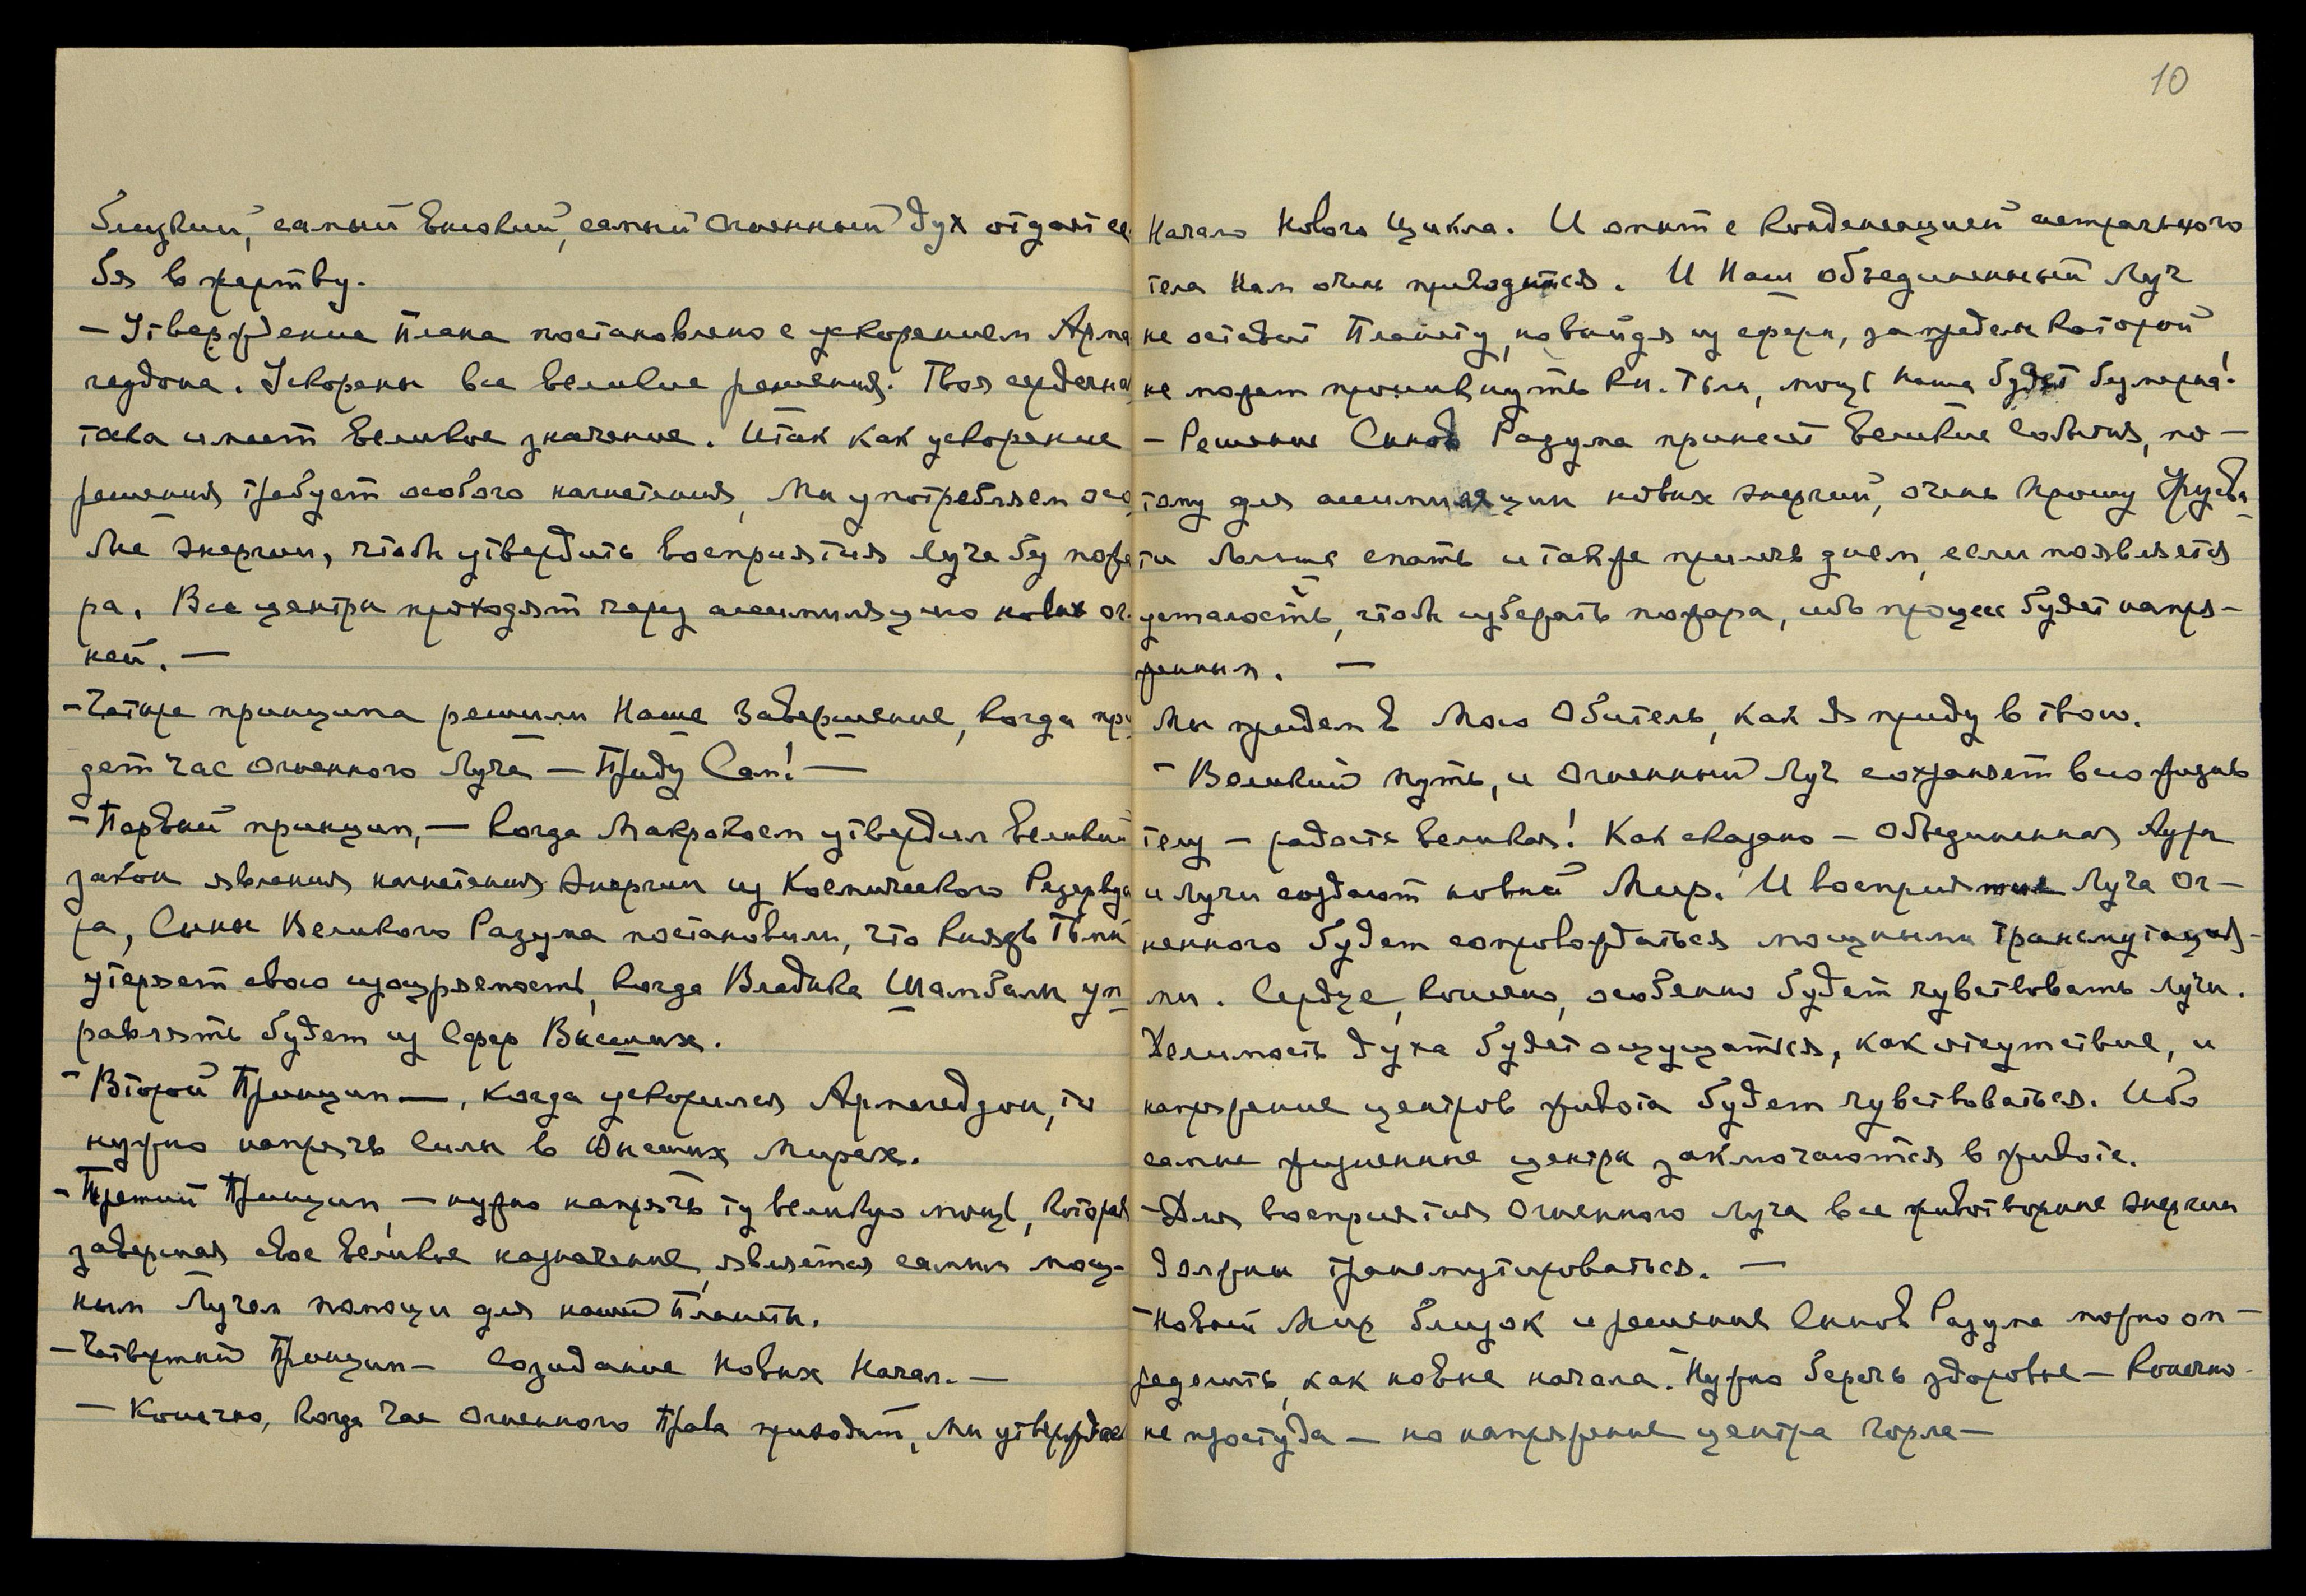 близкий, самый Высокий, самый Огненный Дух отдает се
бя в жертву.
— Утверждение Плана постановлено с ускорением Арма
геддона. Ускорены все великие решения. Твоя сердечная
тоска имеет Великое значение. Итак как ускорение
решения требует особого нагнетения, Мы употребляем осо
бые энергии, чтобы утвердить восприятия Луча без пожа
ра. Все центры проходят через ассимиляцию новых ог.
ней. —
— Четыре принципа решили Наше Завершение, когда при
дет час Огненного Луча — Приду Сам! —
— Первый принцип, — когда Макрокосм утвердил Великий
закон явления нагнетения энергии из Космического Резервуа
ра, Сыны Великого Разума постановили, что Князь Тьмы
утеряет свою изощряемость, когда Владыка Шамбалы уп
равлять будет из Сфер Высших.
— Второй Принцип —, когда ускорился Армагеддон, то
нужно напрячь силы в Высших Мирах.
— Третий Принцип, — нужно напрячь ту великую мощь, которая
завершая свое великое назначение, является самым мощ-
ным Лучем помощи для нашей Планеты.
— Четвертый Принцип — Созидание Новых Начал. —
— Конечно, когда час Огненного Права приходит, Мы утверждаем
10
Начало Нового Цикла. И опыт с конденсацией астрального
тела Нам очень пригодится. И Наш объединенный Луч
не оставит Планету, но выйдя из сферы, за пределы которой
не может проникнуть Кн. Тьмы, мощь Наша будет безмерна!
— Решение Сынов Разума принесет Великие События, по-
тому для ассимиляции новых энергий, очень прошу Урусва-
ти больше спать и также прилечь днем, если появляется
усталость, чтобы избежать пожара, ибо процесс будет напря-
женным. —
Мы придем в Мою Обитель, как Я приду в твою.
— Великий путь, и Огненный Луч сохраняет всю жизнь
телу — радость великая! Как сказано — Объединенная Аура
и Лучи создают новый Мир. И восприятие Луча Ог-
ненного будет сопровождаться мощными трансмутация-
ми. Сердце, конечно, особенно будет чувствовать Лучи.
Делимость духа будет ощущаться, как отсутствие, и
напряжение центров живота будет чувствоваться. Ибо
самые жизненные центры заключаются в животе.
— Для восприятия Огненного Луча все животворные энергии
должны трансмутироваться. —
— Новый Мир близок и решения Сынов Разума можно оп-
ределить, как новые начала. Нужно беречь здоровье — Конечно
не простуда — но напряжение центра горла —